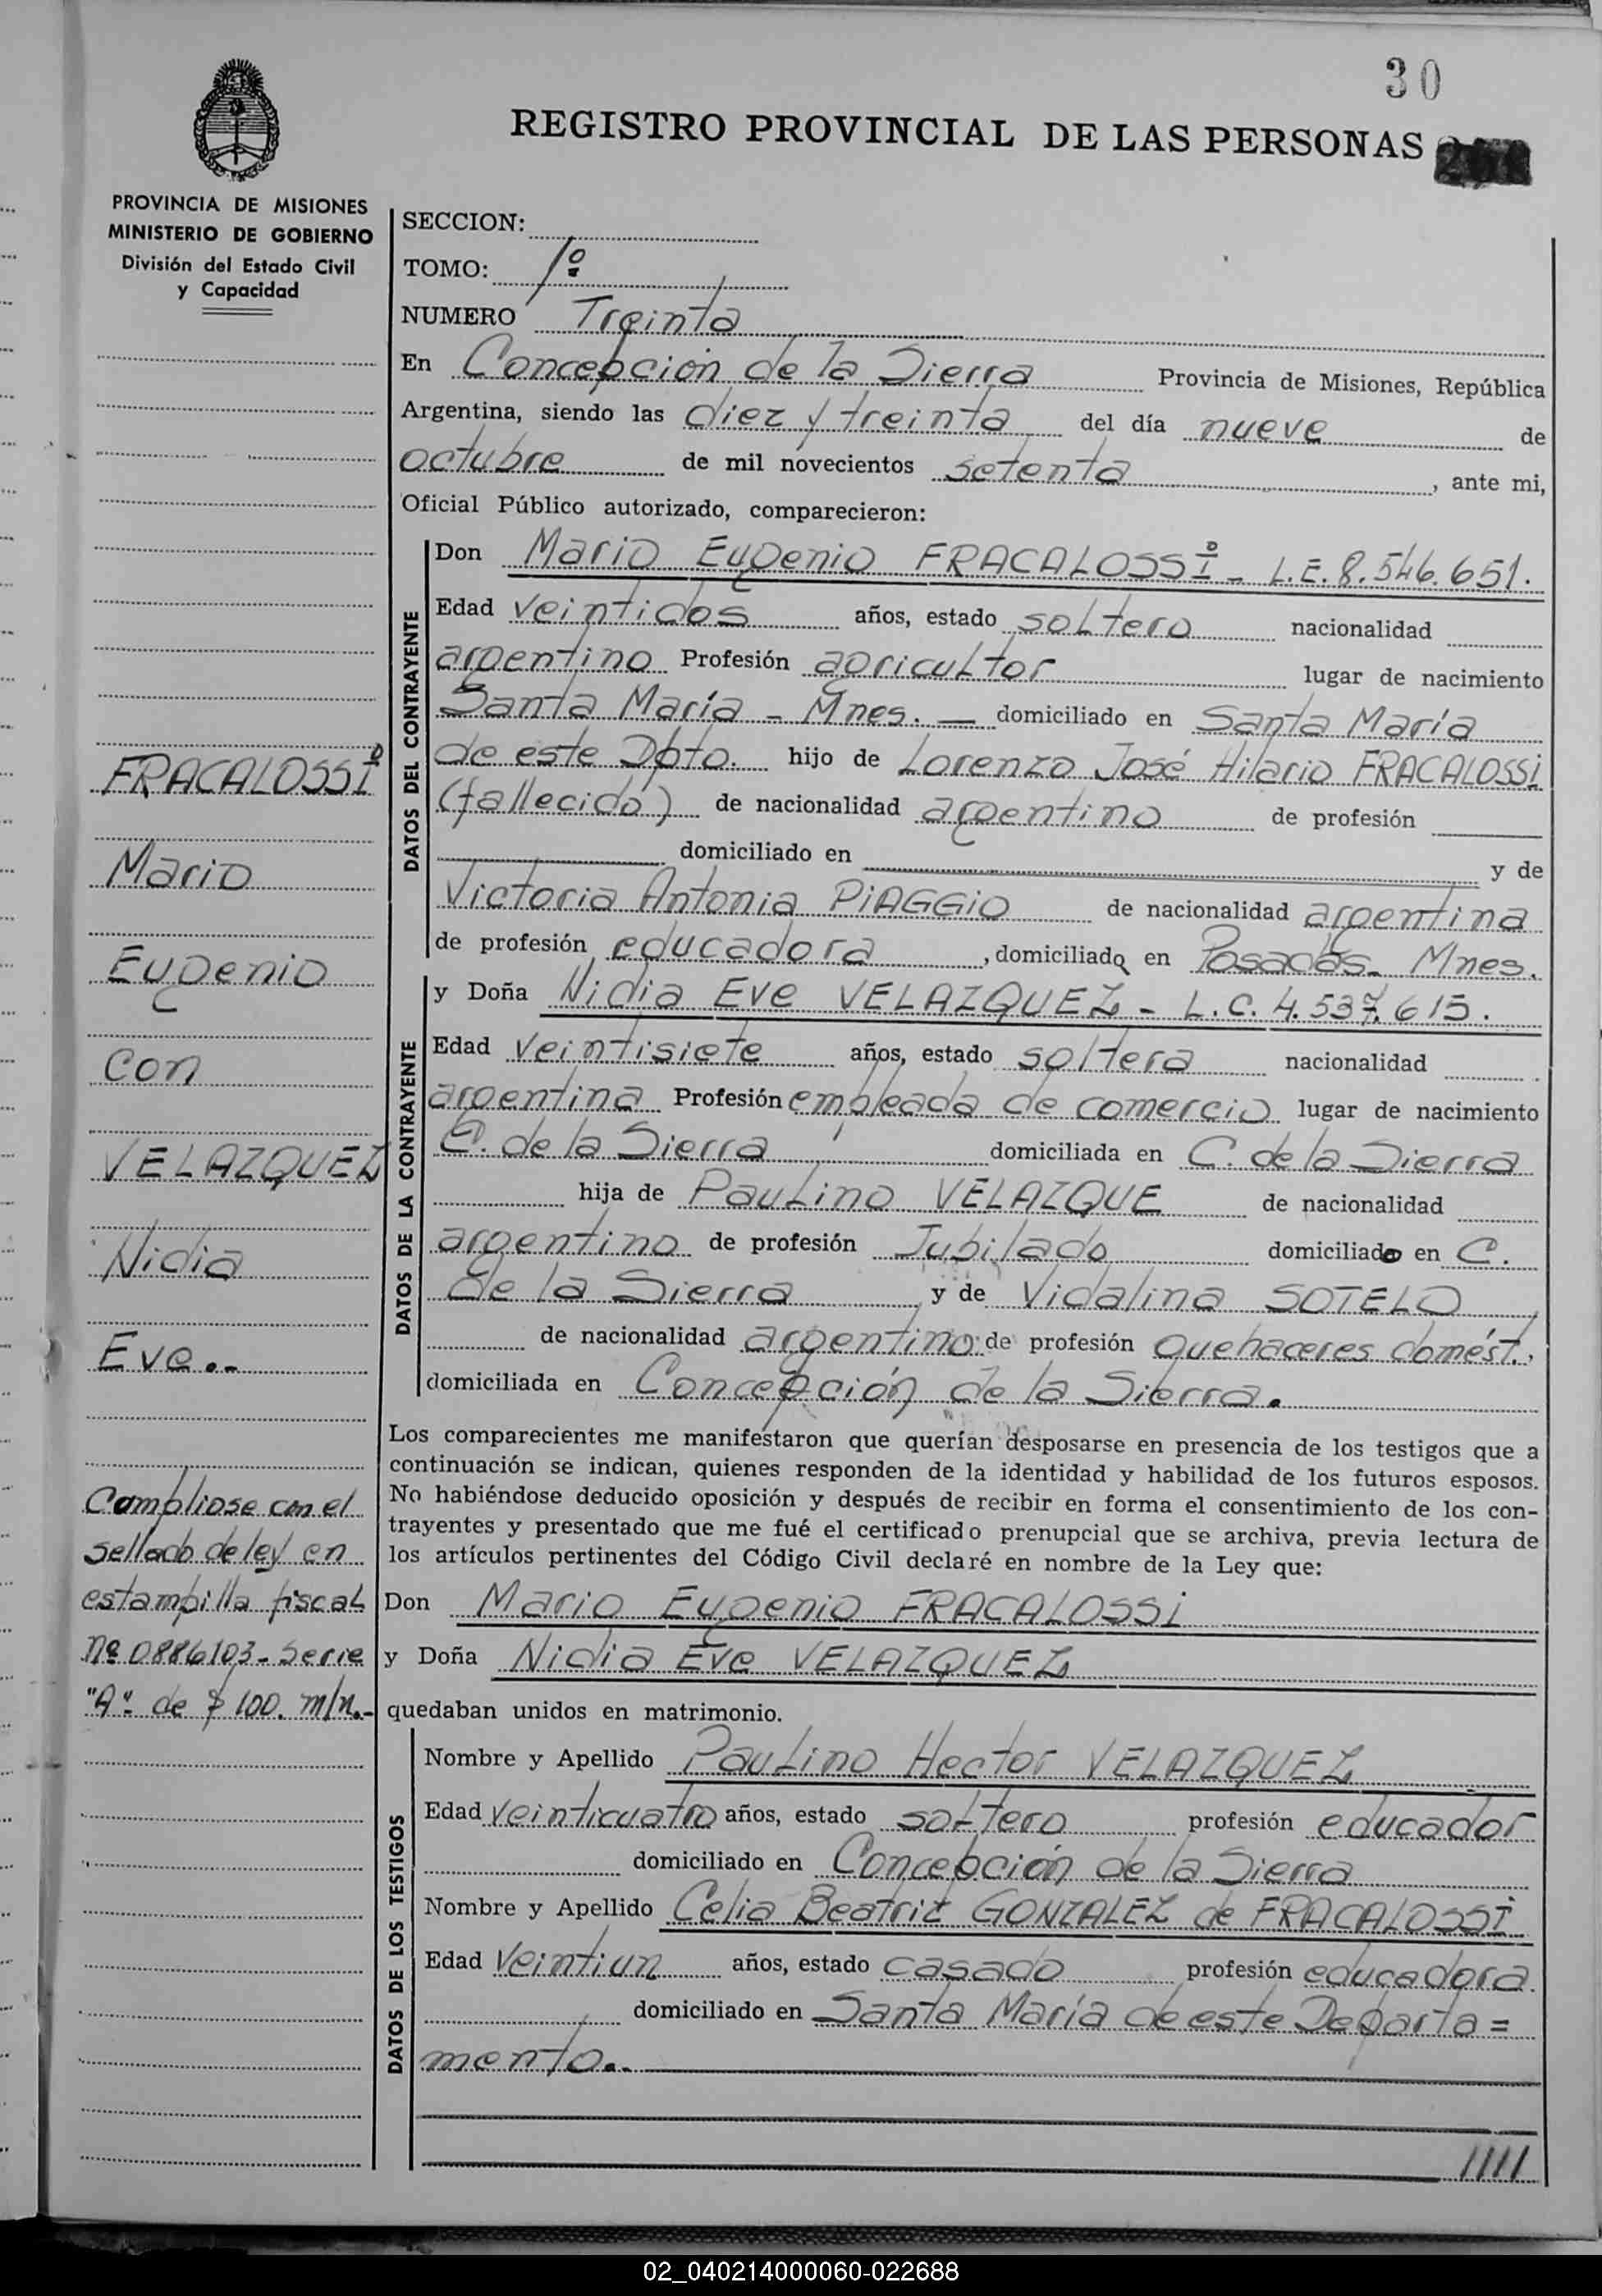 30
REGISTRO PROVINCIAL DE LAS PERSONAS
PROVINCIA DE MISIONES
MINISTERIO DE GOBIERNO
División del Estado Civil
y Capacidad
SECCION:
TOMO: 1º
NUMERO Treinta
En Concepción de la Sierra Provincia de Misiones, República
Argentina, siendo las diez y treinta del día nueve de
octubre de mil novecientos setenta, ante mi,
Oficial Público autorizado, comparecieron:
DATOS DEL CONTRAYENTE
Don Mario Eugenio FRACALOSSI - L.E. 8.546.651.
Edad veintidos años, estado soltero nacionalidad
argentino Profesión agricultor lugar de nacimiento
Santa María - Mnes. — domiciliado en Santa María
de este Dpto. hijo de Lorenzo José Hilario FRACALOSSi
(fallecido) de nacionalidad argentino de profesión
domiciliado en y de
Victoria Antonia PiAGGiO de nacionalidad argentina
de profesión educadora, domiciliada en Posadas - Mnes.
DATOS DE LA CONTRAYENTE
y Doña Nidia Eve VELAZQUEZ - L.C. 4.537.615.
Edad veintisiete años, estado soltera nacionalidad
argentina Profesión empleada de comercio lugar de nacimiento
C. de la Sierra domiciliada en C. de la Sierra
hija de Paulino VELAZQUE de nacionalidad
argentino de profesión Jubilado domiciliado en C.
de la Sierra y de Vidalina SOTELO
de nacionalidad argentino de profesión quehaceres domést.,
domiciliada en Concepción de la Sierra.
Los comparecientes me manifestaron que querían desposarse en presencia de los testigos que a
continuación se indican, quienes responden de la identidad y habilidad de los futuros esposos.
No habiéndose deducido oposición y después de recibir en forma el consentimiento de los con-
trayentes y presentado que me fué el certificado prenupcial que se archiva, previa lectura de
los artículos pertinentes del Código Civil declaré en nombre de la Ley que:
Don Mario Eugenio FRACALOSSi
y Doña Nidia Eve VELAZQUEZ
quedaban unidos en matrimonio.
DATOS DE LOS TESTIGOS
Nombre y Apellido Paulino Hector VELAZQUEZ
Edad veinticuatro años, estado soltero profesión educador
domiciliado en Concepción de la Sierra
Nombre y Apellido Celia Beatriz GONZALEZ de FRACALOSSI
Edad veintiun años, estado casado profesión educadora
domiciliado en Santa María de este Departa=
mento..
////
FRACALOSSI
Mario
Eugenio
con
VELAZQUEZ
Nidia
Eve.-
Cumpliose con el
sellado de ley en
estampilla fiscal
nº 0886103 - Serie
"A" de $ 100. m/n.-
02_040214000060-022688